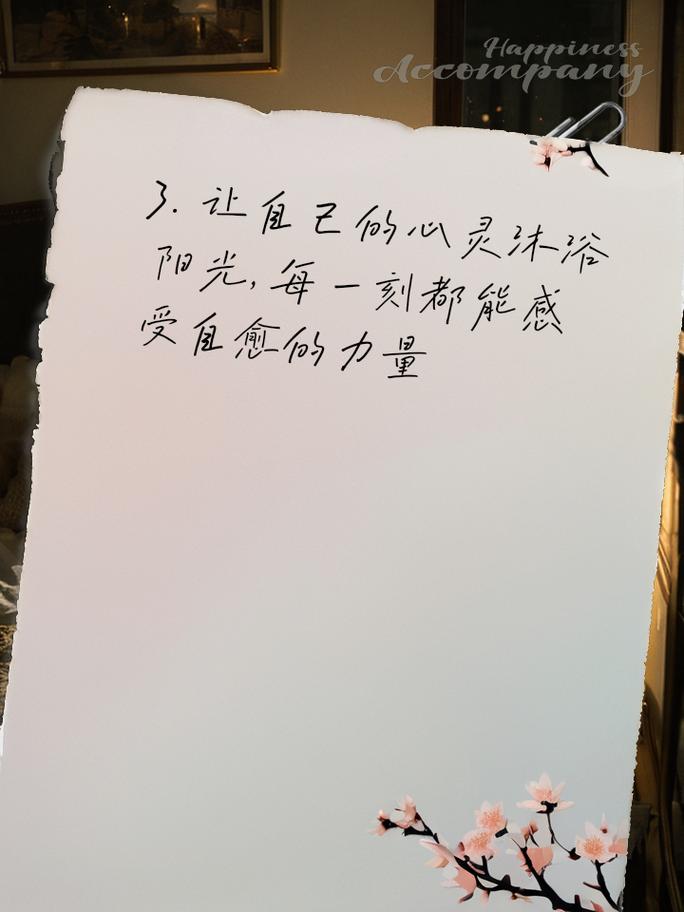 Happiness
Accompany
3. 让自己的心灵沐浴
阳光,每一刻都能感
受自愈的力量